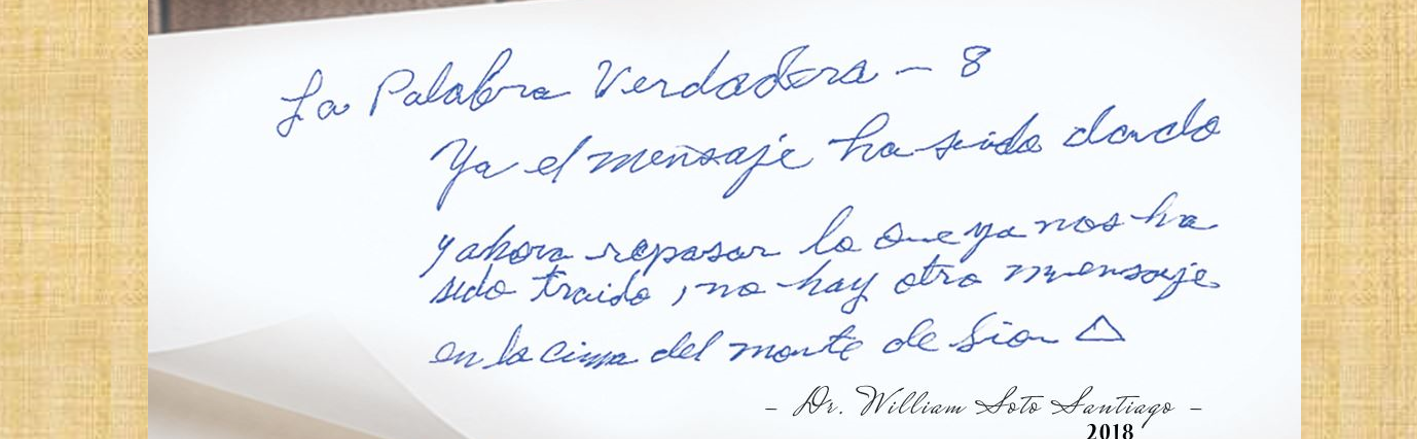 La Palabra Verdadera – 8
Ya el mensaje ha sido dado
y ahora repasar lo que ya nos ha
sido traido, no hay otro mensaje
en la cima del monte de Sion △
– Dr. William Soto Santiago –
2018